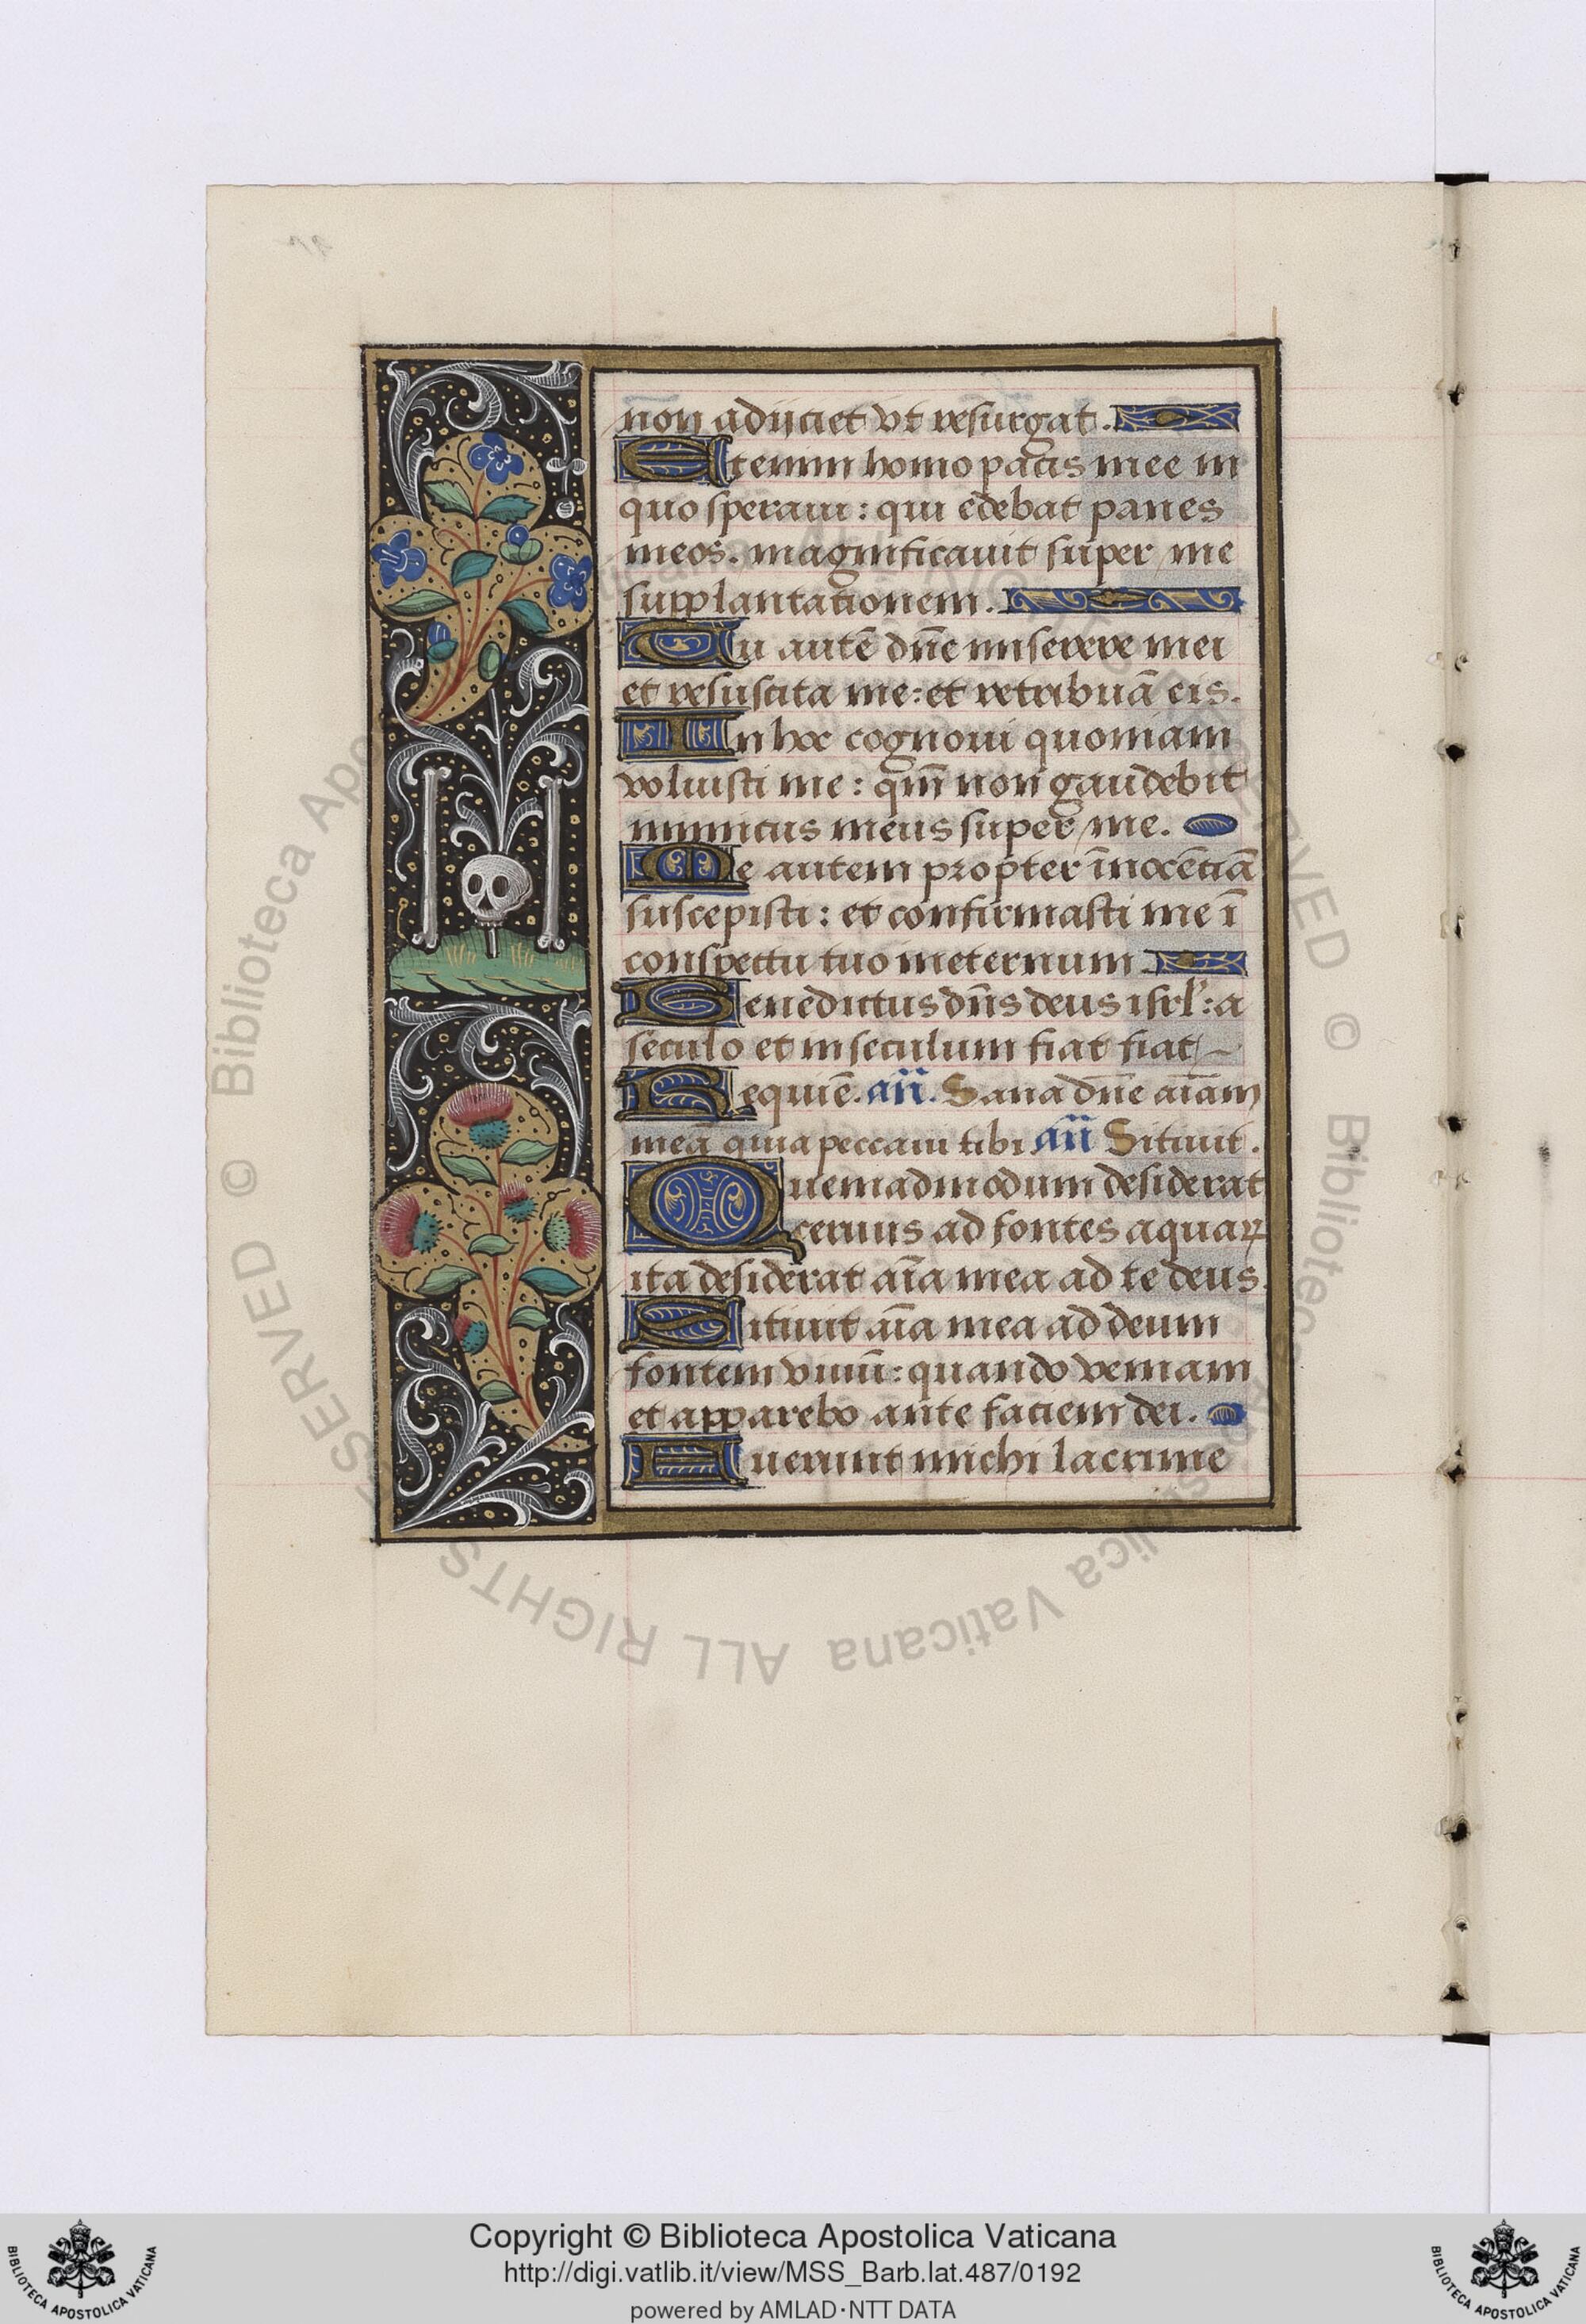 non adijciet vt resurgat.
Etenim homo pacis mee in
quo speraui: qui edebat panes
meos. magnificauit super me
supplantationem.
Tu autē dn̄e miserere mei
et resuscita me: et retribuā eis.
In hoc cognoui quoniam
voluisti me: qm̄ non gaudebit
inimicus meus super me.
Me autem propter īnocētiā
suscepisti: et confirmasti me ī
conspectu tuo ineternum
Benedictus dn̄s deus isrl': a
seculo et in seculum fiat fiat
Requiē. an̄. Sana dn̄e aīam
meā quia peccaui tibi an̄ Sitiuit.
Quemadmodum desiderat
ceruus ad fontes aquaꝝ
ita desiderat aīa mea ad te deus.
Sitiuit aīa mea ad deum
fontem viuū: quando veniam
et apparebo ante faciem dei.
Fuerunt michi lacrime
© Biblioteca Apostolica Vaticana ALL RIGHTS RESERVED
Copyright © Biblioteca Apostolica Vaticana
http://digi.vatlib.it/view/MSS_Barb.lat.487/0192
powered by AMLAD·NTT DATA
BIBLIOTECA APOSTOLICA VATICANA
BIBLIOTECA APOSTOLICA VATICANA